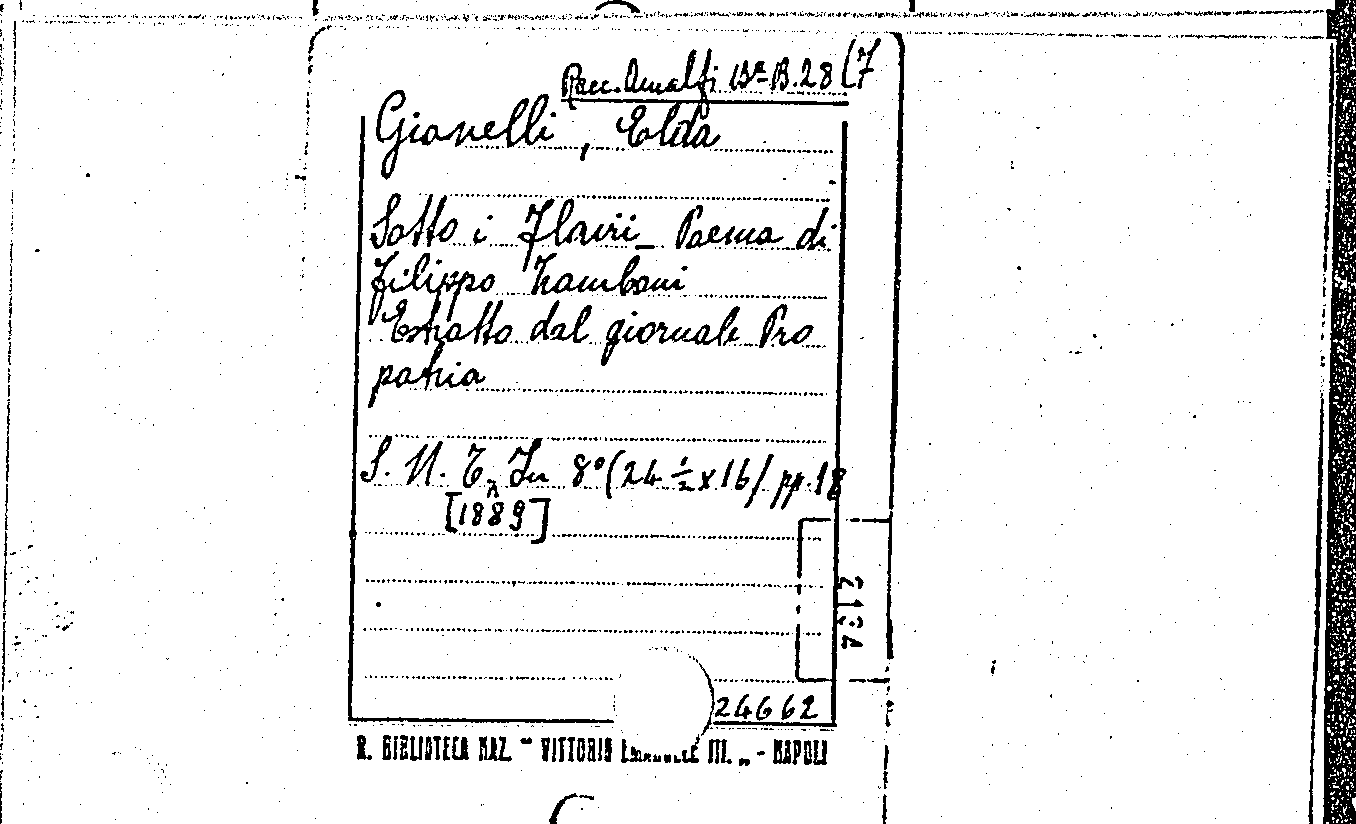 Racc. Amalfi Bª B. 28 (7
Gianelli, Elda
Sotto i Flavii_ Poema di
Filippo Zamboni
Estratto dal giornale Pro
patria
S. N. T. In 8° (24 ½ x 16) pp. 18
[1889]
24662
R. BIBLIOTECA NAZ. "VITTORIO EMANUELE III." - NAPOLI